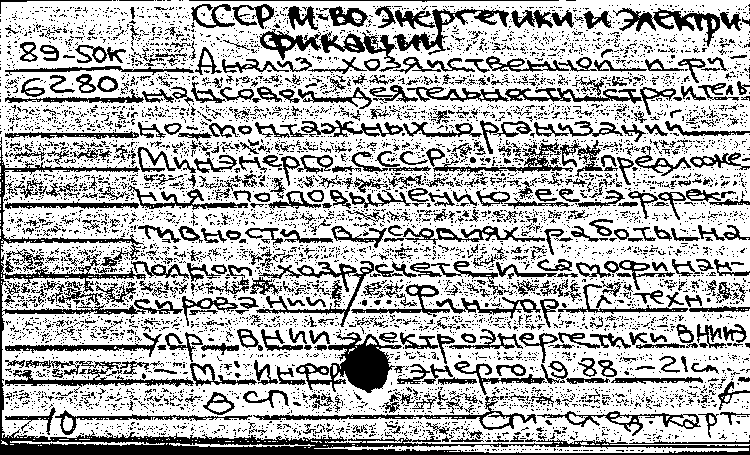 СССР М-во энергетики и электри-
фикации
89-50к
6280
Анализ хозяйственной и фи-
нансовой деятельности строитель-
но-монтажных организаций
Минэнерго СССР ... и предложе-
ния по повышению ее эффек-
тивности в условиях работы на
полном хозрасчете и самофинан-
сировании / ... Фин. упр. Гл. техн.
упр., ВНИИ электроэнергетики ВНИИЭ
. - М.: Информэнерго, 1988. - 21 см
В сп.
10
См. след. карт.